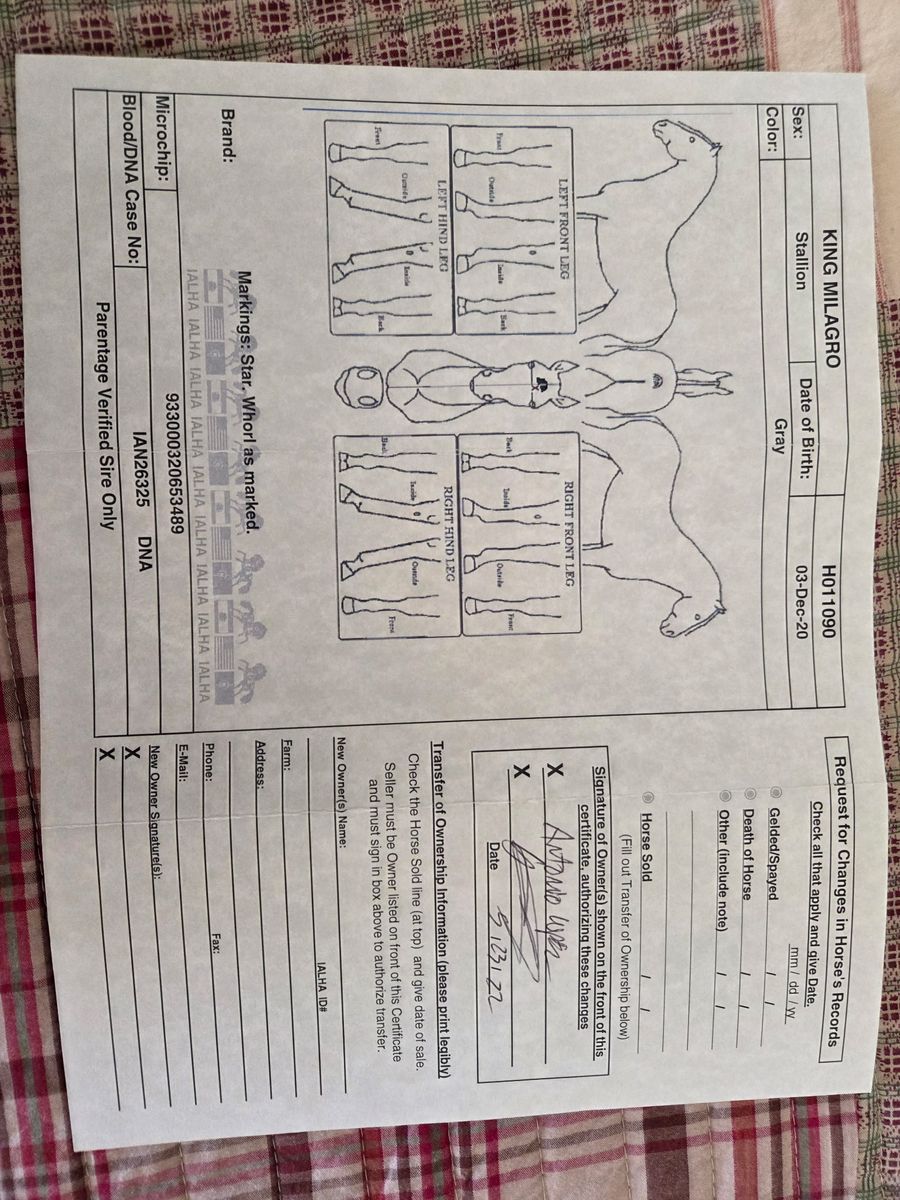 KING MILAGRO H011090
Sex: Stallion Date of Birth: 03-Dec-20
Color: Gray
LEFT FRONT LEG
Front Outside Inside Back
LEFT HIND LEG
Front Outside Inside Back
RIGHT FRONT LEG
Back Inside Outside Front
RIGHT HIND LEG
Back Inside Outside Front
Brand: Markings: Star, Whorl as marked.
IALHA IALHA IALHA IALHA IALHA IALHA IALHA IALHA IALHA IALHA
Microchip: 933000320653489
Blood/DNA Case No: IAN26325 DNA
Parentage Verified Sire Only
Request for Changes in Horse's Records
Check all that apply and give Date.
mm / dd / yy
Gelded/Spayed / /
Death of Horse / /
Other (include note) / /
Horse Sold / /
(Fill out Transfer of Ownership below)
Signature of Owner(s) shown on the front of this
certificate, authorizing these changes
X Antonio
X
Date 5/23/22
Transfer of Ownership Information (please print legibly)
Check the Horse Sold line (at top) and give date of sale.
Seller must be Owner listed on front of this Certificate
and must sign in box above to authorize transfer.
New Owner(s) Name:
IALHA ID#
Farm:
Address:
Phone: Fax:
E-Mail:
New Owner Signature(s):
X
X